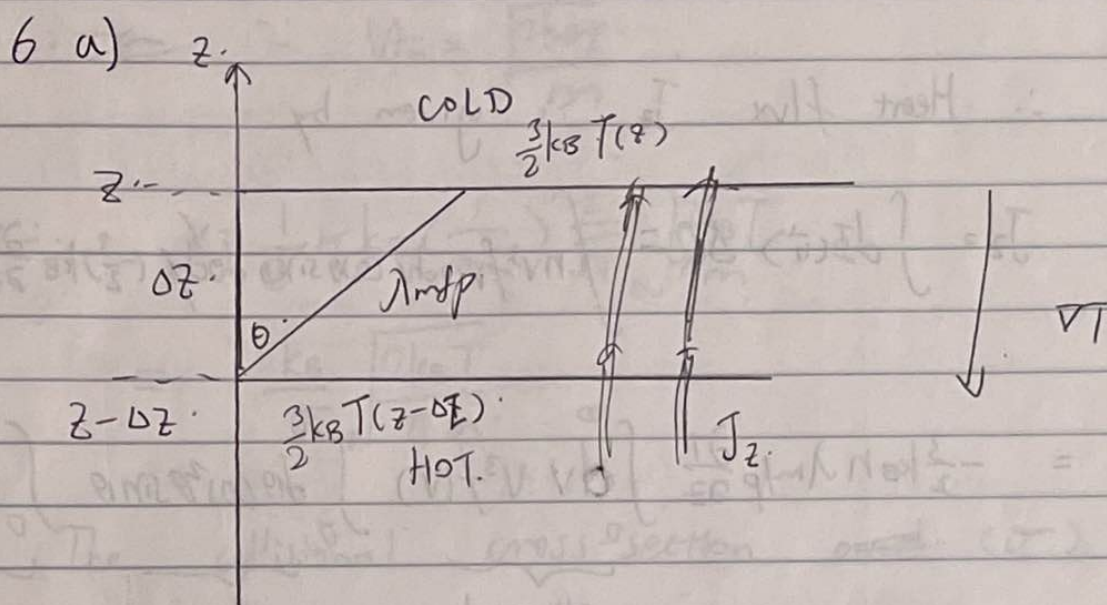 6 a) z.
COLD
3/2 kB T(z)
z
Δz.
θ
λmfp.
∇T
z-Δz.
3/2 kB T(z-Δz)
HOT.
Jz.